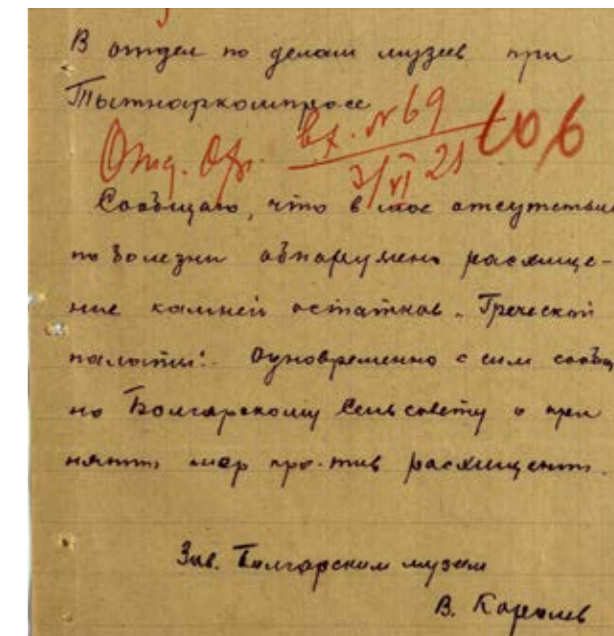 В отдел по делам музеев при
Татнаркомпросе
вх. № 69
3/VI 21
Сообщаю, что в мое отсутствие
по болезни обнаружено расхище-
ние камней остатков „Греческой
палаты". Одновременно с сим сообще
но Болгарскому сельсовету о при
нятии мер против расхищения.
Зав. Болгарским музеем
В.